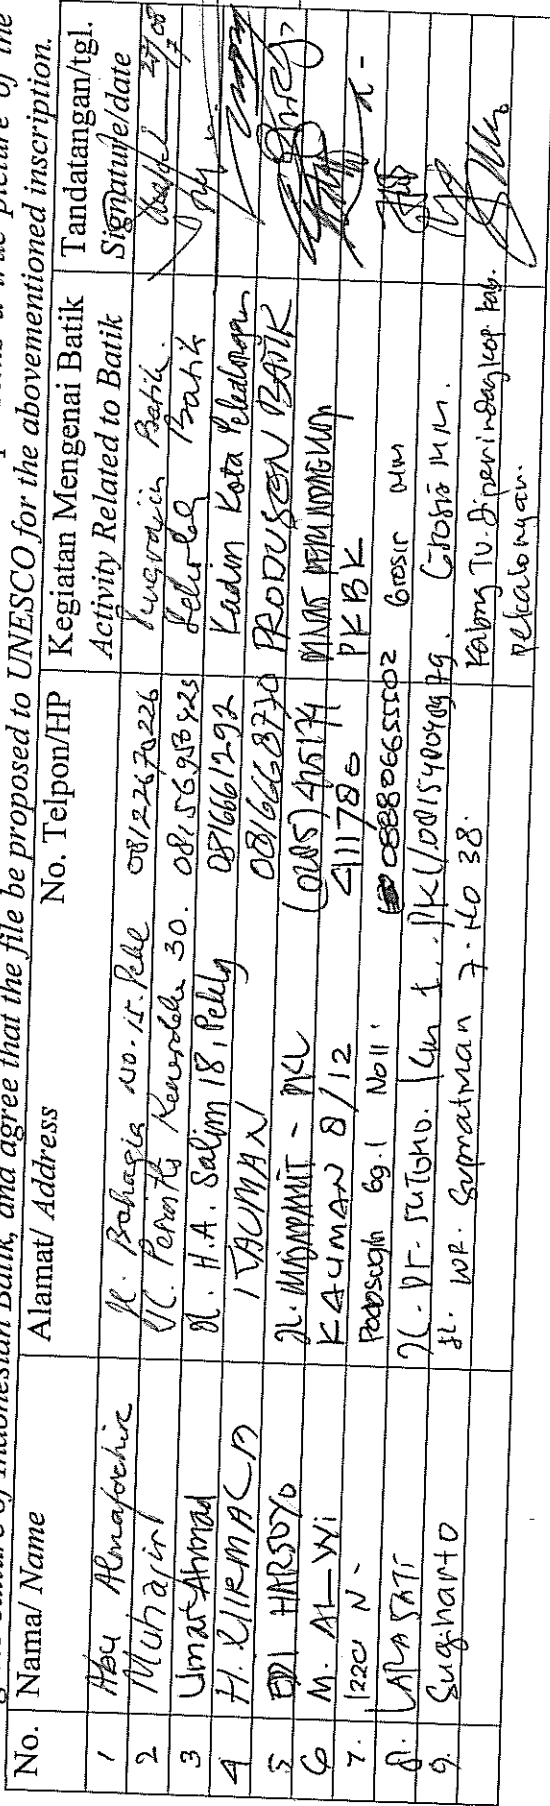 g the culture of Indonesian Batik, and agree that the file be proposed to UNESCO for the abovementioned inscription.
No. Nama/ Name Alamat/ Address No. Telpon/HP Kegiatan Mengenai Batik Activity Related to Batik Tandatangan/tgl. Signature/date
1 Abu Almafachir Jl. Bahagia No. 15. Pekl 08122670226 Pengrajin Batik.
2 Muhajirin Jl. Perintis Kemerdekaan 30. 0815 6958423 Batik
3 Umar Ahmad Jl. H.A. Salim 18, Peklg 08166661292 Kadin Kota Pekalongan
4 H. KAUMAN 08166668730 PRODUSEN BATIK
5 EDI HARSOYO Jl. - PKL (0285) 415174
6 M. AL-Wi KAUMAN 8/12 411780 PKBK
7. N. Podosugih Gg. 1 No 11. 088806655502 Grosir MM
8. LARASATI Jl. Dr. SUTOMO. Km 1. PKL/ Grosir M.M.
9. Sugiharto Jl. WR. Supratman 7. No 38. Kabag TU. Diperindagkop Kab. Pekalongan.